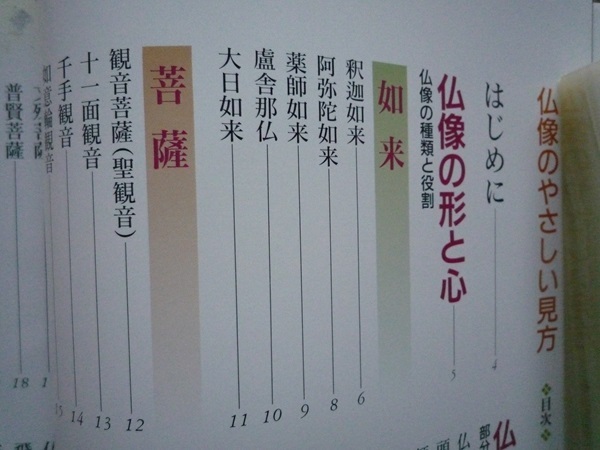 仏像のやさしい見方 ❖目次❖
はじめに 4
仏像の形と心 5
仏像の種類と役割
如来
釈迦如来 6
阿弥陀如来 8
薬師如来 9
盧舎那仏 10
大日如来 11
菩薩
観音菩薩(聖観音) 12
十一面観音 13
千手観音 14
如意輪観音 15
普賢菩薩 18
仏
部分
仏
頭